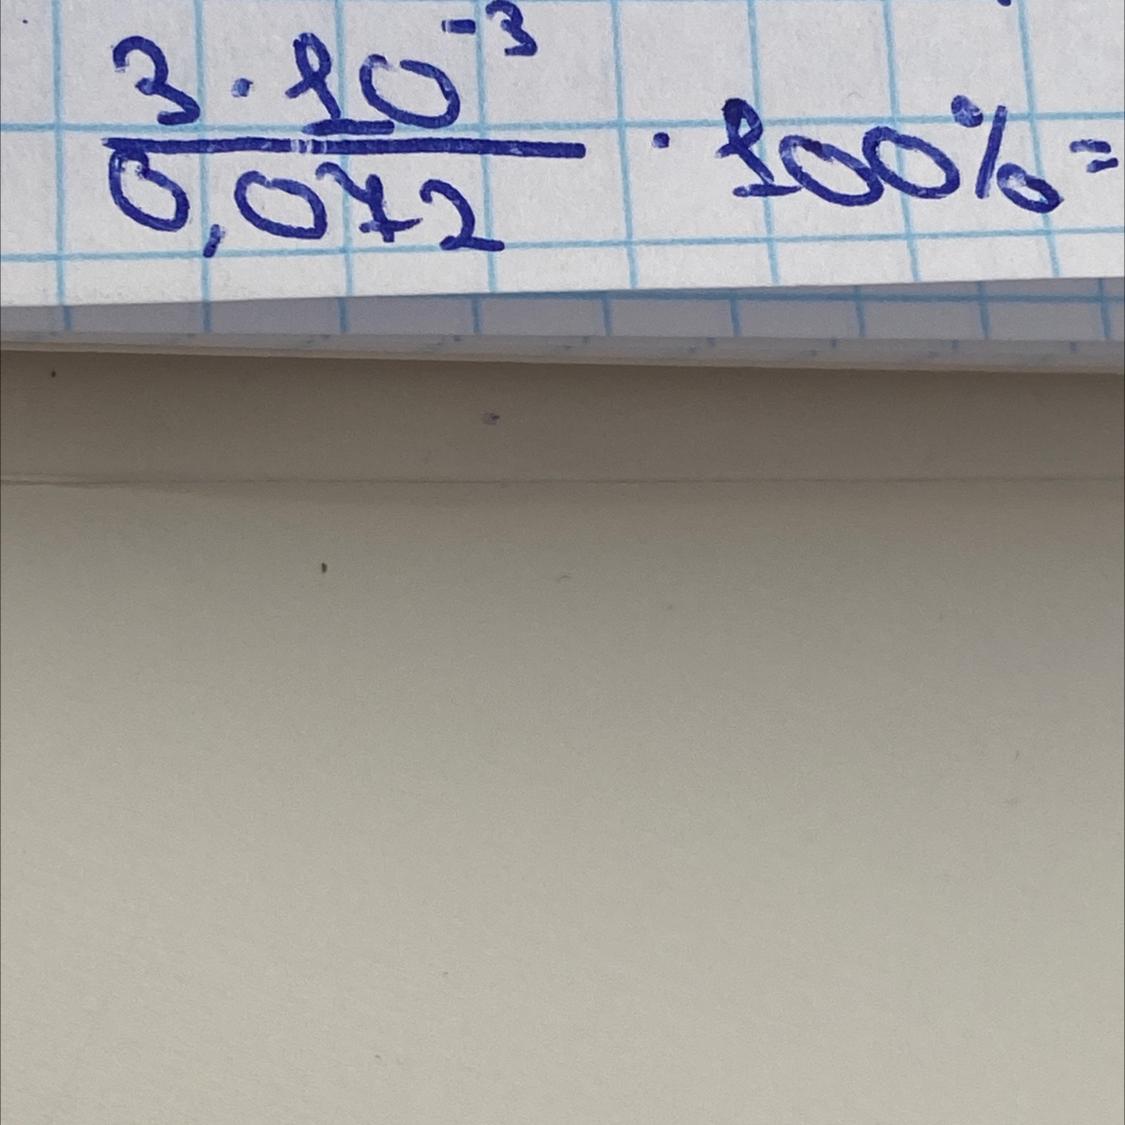 3 · 10⁻³
0,072 · 100% =